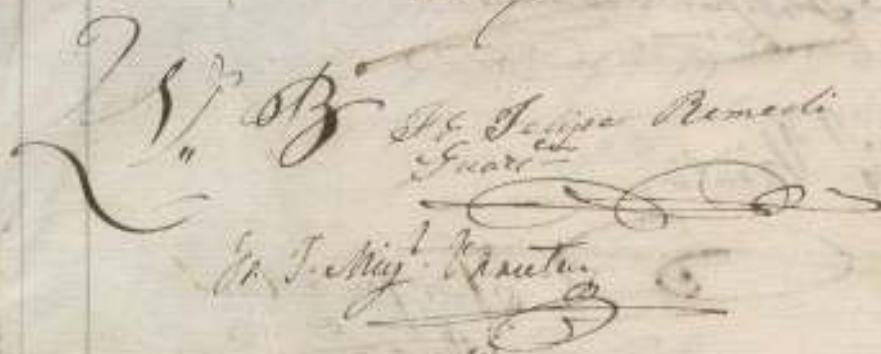 V. B.
Fr. Felipe Remedi
Guar.en
Fr. J. Mig.l